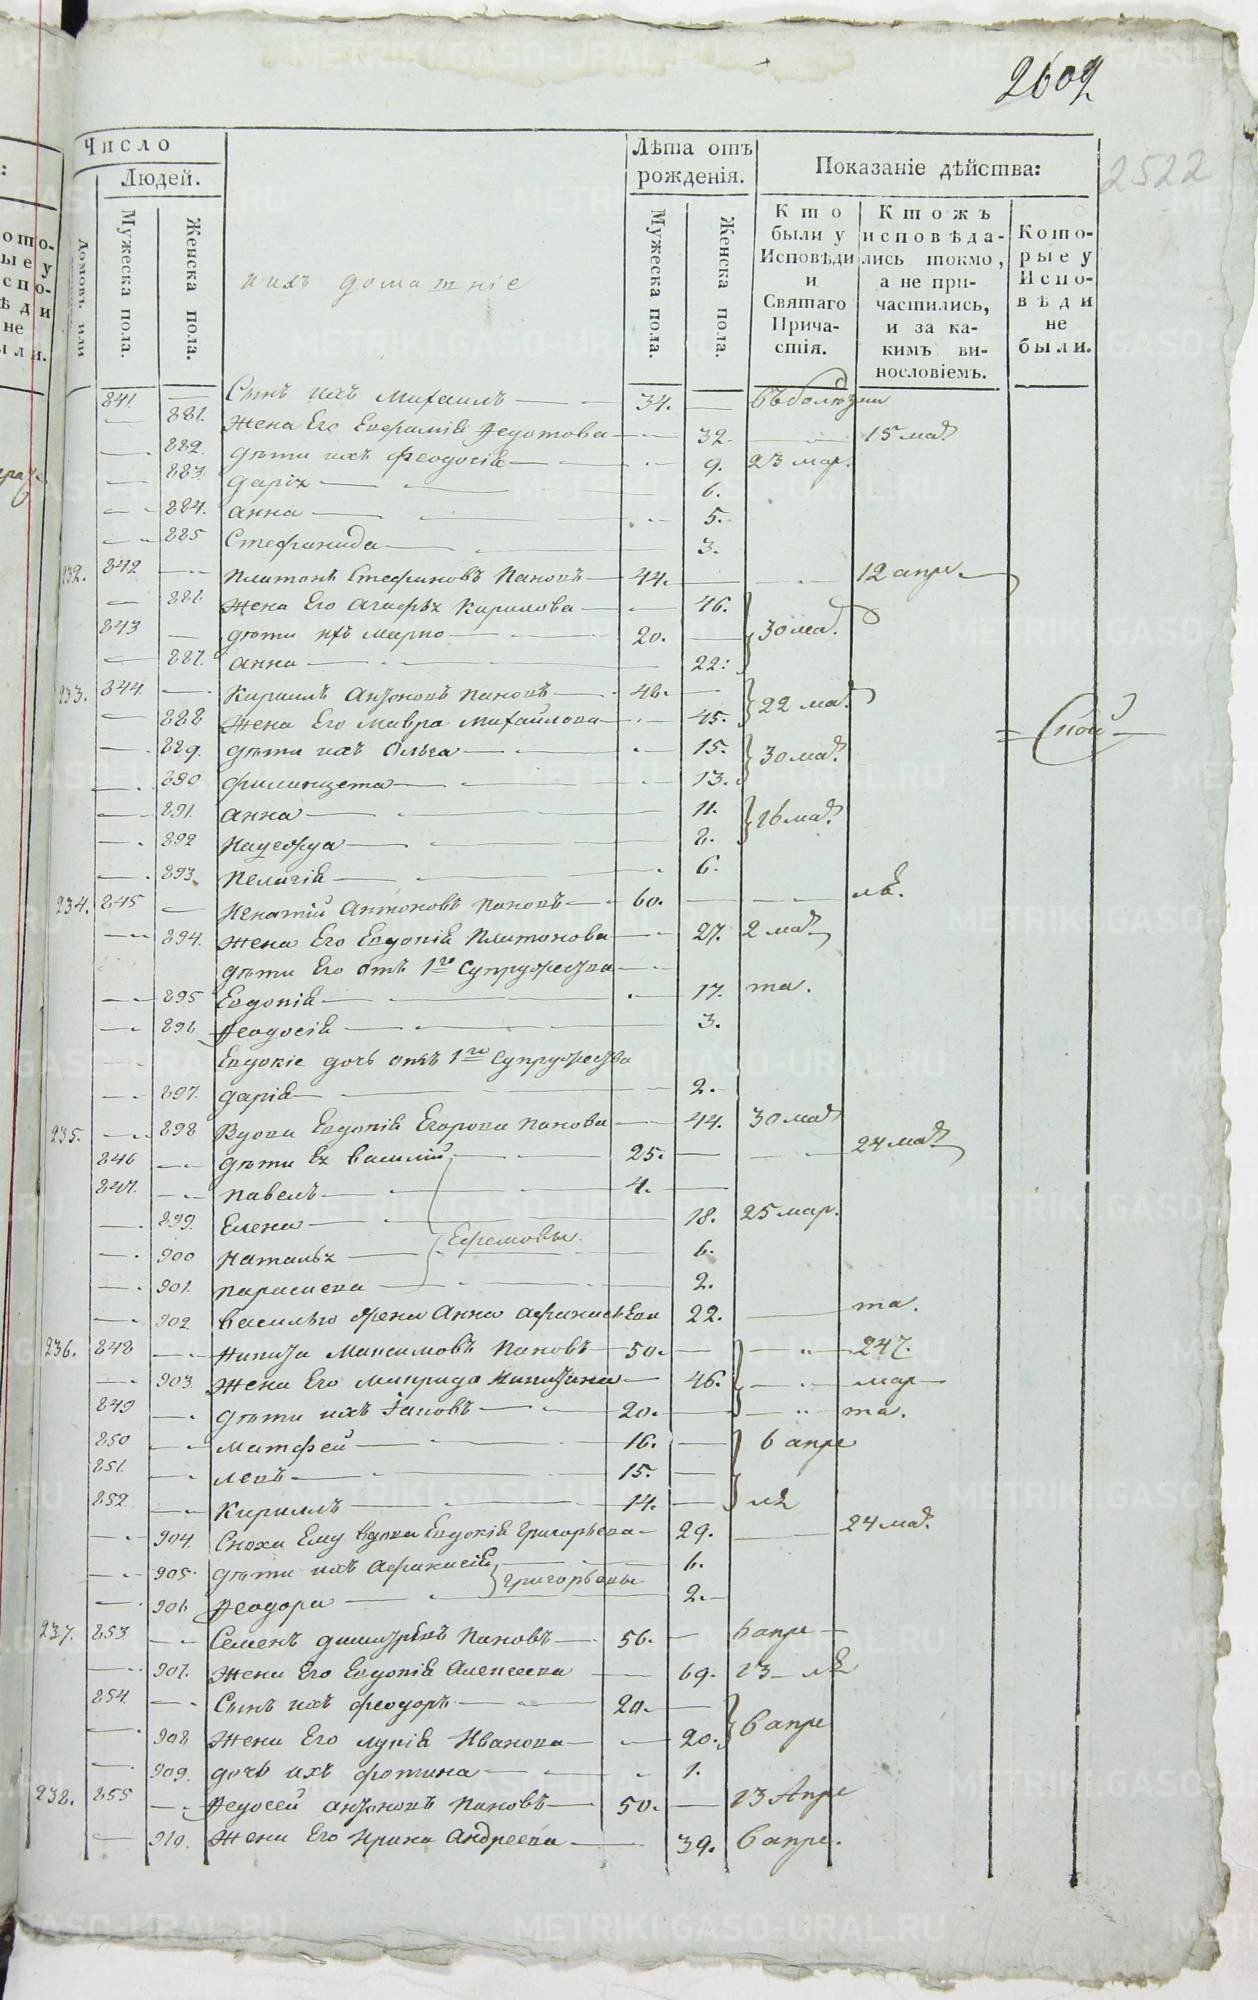 2602
2522
Число
Людей.
Лѣта отъ рожденія.
Показаніе дѣйства:
Домовъ или
Мужеска пола.
Женска пола.
и ихъ домашніе
Мужеска пола.
Женска пола.
Кто были у Исповѣди и Святаго Причастія.
Ктожъ исповѣдались токмо, а не причастились, и за какимъ винословіемъ.
Которые у Исповѣди не были.
841. Сынъ ихъ Михаилъ 34.
881. Жена Его Евфимія Федотова 32. 15 ма
882. дѣти ихъ Феодосія 9. 23 мар.
883. Дарія 6.
884. Анна 5.
885 Стефанида 3.
232. 842 Платонъ Стефановъ Пановъ 44. 12 апре.
Жена Его Агафья Кирилова 46.
843 дѣти ихъ Марко 20. 30 ма.
887. Анна 22.
233. 844. Кириллъ Антоновъ Пановъ 46. 22 ма.
888 Жена Его Мавра Михайлова 45.
889. дѣти ихъ Ольга 15. 30 ма.
890 Филицета 13.
891. Анна 11. 16 ма.
892 Надежда 8.
893. Пелагія 6.
234. 845 Игнатій Антоновъ Пановъ 60.
894. Жена Его Евдокія Платонова 27. 2 ма
дѣти Его отъ 1го Супружества
895 Евдокія 17. та.
896 Феодосія 3.
Евдокіе дочь отъ 1го Супружества
897. Дарія 2.
235. 898 Вдова Евдокія Егорова Панова 44. 30 ма
846 дѣти Ея Василій 25. 24 ма
847. Павелъ 4.
899. Елена 18. 25 мар.
Ефремовы.
900 Наталья 6.
901. Параскева 2.
902 Василью жена Анна Афанасьева 22. та.
236. 848 Никита Максимовъ Пановъ 50. 247.
903. Жена Его Макрида Никитина 46. мар
849 дѣти ихъ Іаковъ 20. та.
850 Матфей 16. 6 апре
851. Левъ 15.
852 Кириллъ 14.
904. Сноха Ему вдова Евдокія Григорьева 29. 24 ма.
905. дѣти ихъ Афанасія 6.
Григорьевы
906 Феодора 2.
237. 853. Семенъ Димитріевъ Пановъ 56. 6 апре
907. Жена Его Евдокія Алексеева 69. 13
854. Сынъ ихъ Феодоръ 20.
908 Жена Его Лукія Иванова 20. 6 апре
909. дочь ихъ Фотина 1.
238. 855 Федосей Антоновъ Пановъ 50. 13 Апре
910. Жена Его Ирина Андреева 39. 6 апре.
METRIKI.GASO-URAL.RU